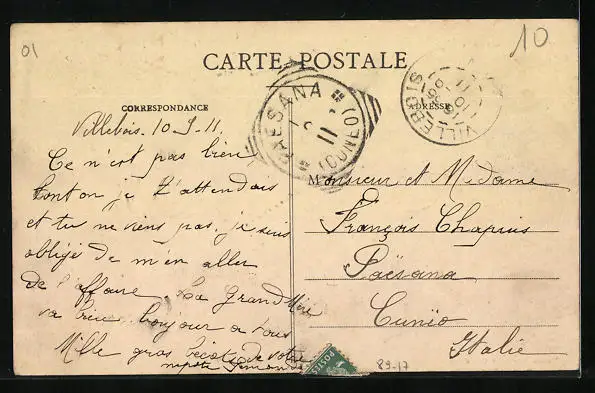 01
10
CARTE POSTALE
CORRESPONDANCE
ADRESSE
PAESANA
(CUNEO)
11
VILLEBOIS
Villebois. 10-9-11.
Ce n'est pas bien
tonton je t'attendais
et tu ne viens pas, je suis
obligé de m'en aller
de l'affaire. La Grand Mère
va bien. bonjour a tous
Mille gros bécots de votre
Monsieur et Madame
François Chapuis
Paësana
Cunëo
Italie
POSTES
89-17